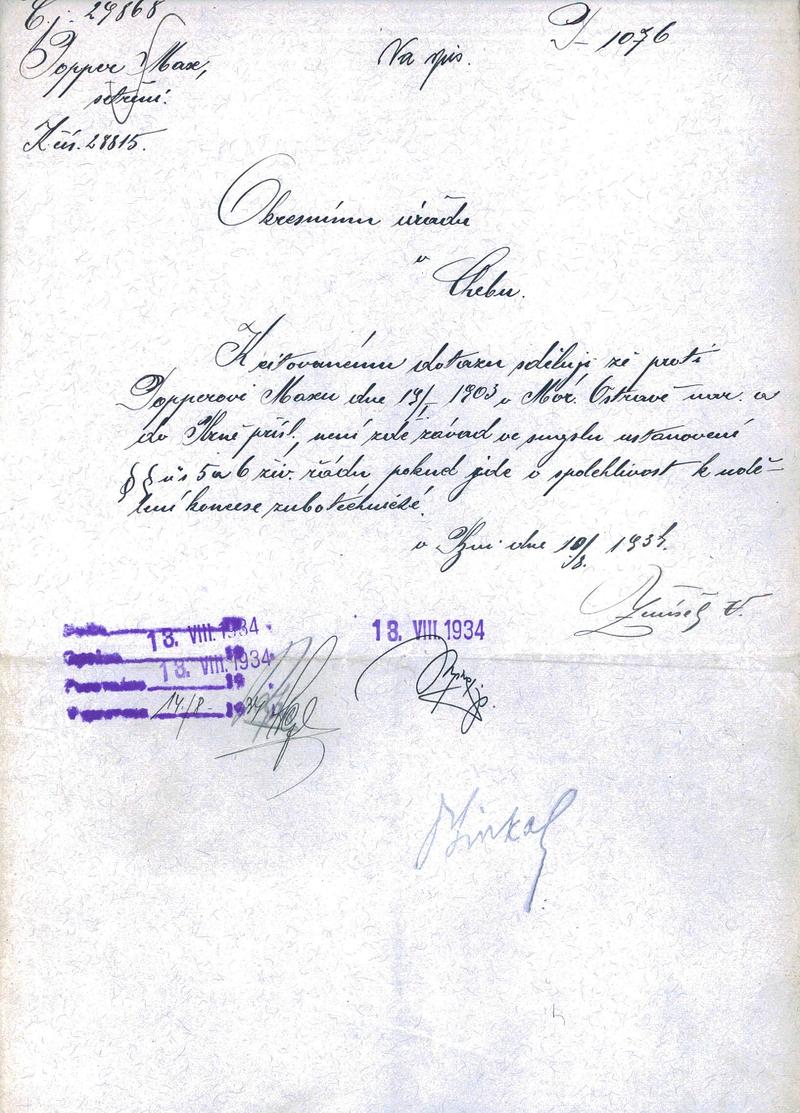 Č. : 29868
P - 1076
Popper Max,
šetření.
Na spis.
K čís. 28815.
Okresnímu úřadu
v
Chebu.
K citovanému dotazu sděluji, že proti
Popperovi Maxu dne 19/I. 1903 v Mor. Ostravě nar. a
do Brně přísl., není zde závad ve smyslu ustanovení
§ § ů s 5 a 6 živ. řádu, pokud jde o spolehlivost k udě-
lení koncese zubotechnické.
v Brně dne 10/8. 1934.
18. VIII. 1934
18. VIII. 1934
18. VIII. 1934
14./8. 1934